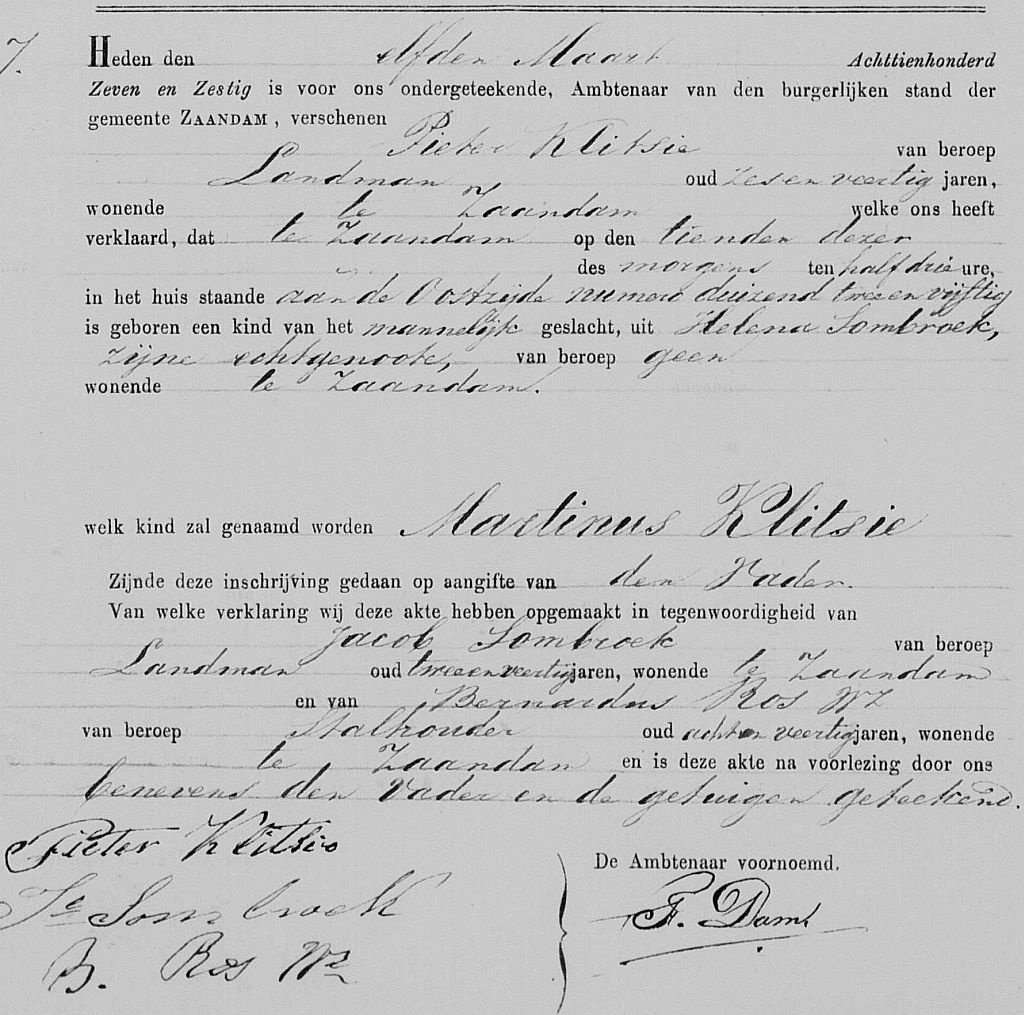 7.
Heden den elfden Maart Achttienhonderd
Zeven en Zestig is voor ons ondergeteekende, Ambtenaar van den burgerlijken stand der
gemeente ZAANDAM, verschenen
Pieter Klitsie van beroep
Landman oud zes en veertig jaren,
wonende te Zaandam welke ons heeft
verklaard, dat te Zaandam op den tienden dezer
des morgens ten half drie ure,
in het huis staande aan de Oostzijde numero duizend twee en vijftig
is geboren een kind van het mannelijk geslacht, uit Helena Sombroek,
zijne echtgenoote, van beroep geen
wonende te Zaandam.
welk kind zal genaamd worden Martinus Klitsie
Zijnde deze inschrijving gedaan op aangifte van den Vader.
Van welke verklaring wij deze akte hebben opgemaakt in tegenwoordigheid van
Jacob Sombroek van beroep
Landman oud twee en veertig jaren, wonende te Zaandam
en van Bernardus Ros WZ
van beroep Stalhouder oud acht en veertig jaren, wonende
te Zaandam en is deze akte na voorlezing door ons
benevens den Vader en de getuigen geteekend.
Pieter Klitsie
De Ambtenaar voornoemd.
Jb Sombroek
F. Dam
B. Ros Wz